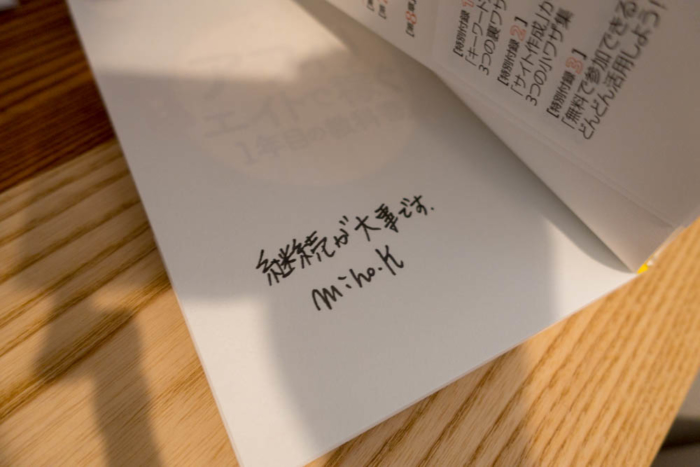 継続が大事です.
miho.K
【特別付録1】
「キーワード
3つの裏ワザ
【特別付録2】
「サイト作成」か
3つの小ワザ集
【特別付録3】
「無料で参加できる
どんどん活用しよう!